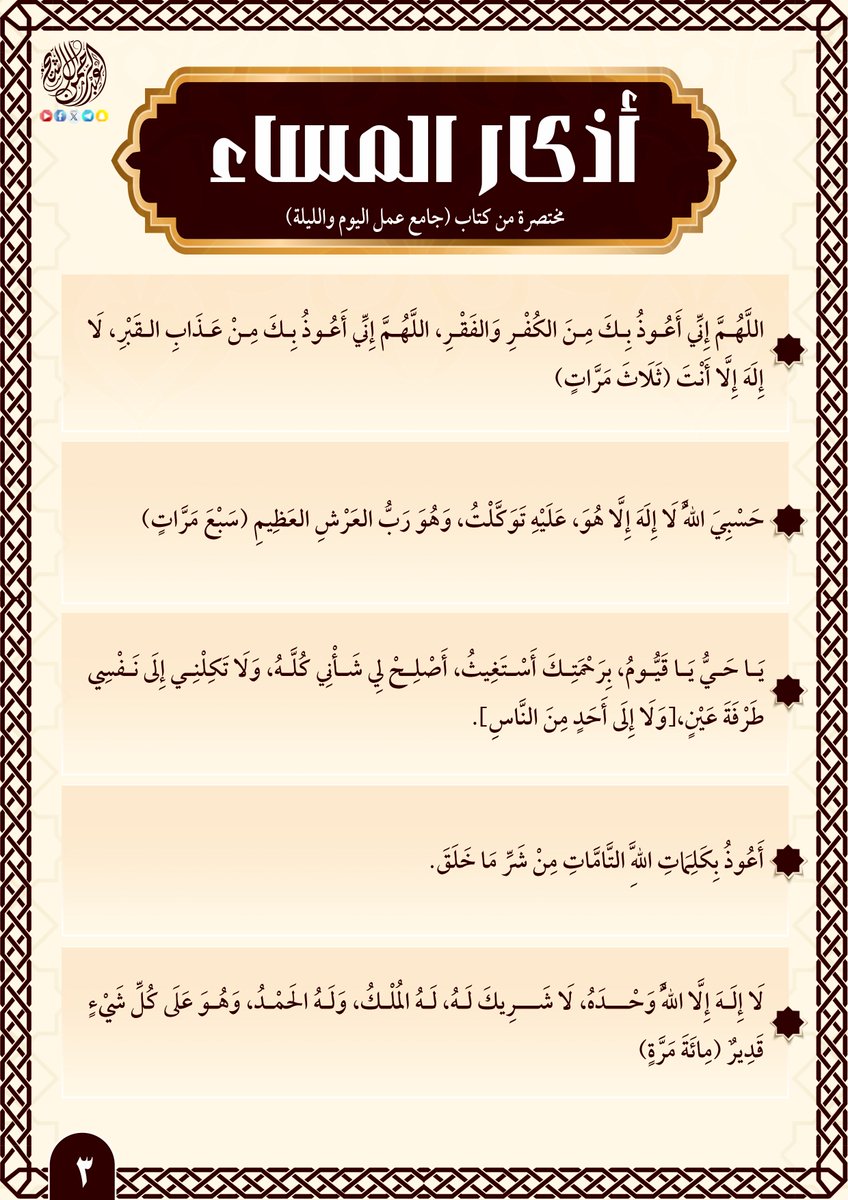 أذكار المساء
مختصرة من كتاب (جامع عمل اليوم والليلة)
اللَّهُمَّ إِنِّي أَعُوذُ بِكَ مِنَ الكُفْرِ وَالفَقْرِ، اللَّهُمَّ إِنِّي أَعُوذُ بِكَ مِنْ عَذَابِ القَبْرِ، لَا
إِلَهَ إِلَّا أَنْتَ (ثَلَاثَ مَرَّاتٍ)
حَسْبِيَ اللهُ لَا إِلَهَ إِلَّا هُوَ، عَلَيْهِ تَوَكَّلْتُ، وَهُوَ رَبُّ العَرْشِ العَظِيمِ (سَبْعَ مَرَّاتٍ)
يَا حَيُّ يَا قَيُّومُ، بِرَحْمَتِكَ أَسْتَغِيثُ، أَصْلِحْ لِي شَأْنِي كُلَّهُ، وَلَا تَكِلْنِي إِلَى نَفْسِي
طَرْفَةَ عَيْنٍ،[وَلَا إِلَى أَحَدٍ مِنَ النَّاسِ].
أَعُوذُ بِكَلِمَاتِ اللهِ التَّامَّاتِ مِنْ شَرِّ مَا خَلَقَ.
لَا إِلَهَ إِلَّا اللهُ وَحْدَهُ، لَا شَرِيكَ لَهُ، لَهُ المُلْكُ، وَلَهُ الحَمْدُ، وَهُوَ عَلَى كُلِّ شَيْءٍ
قَدِيرٌ (مِائَةَ مَرَّةٍ)
٣